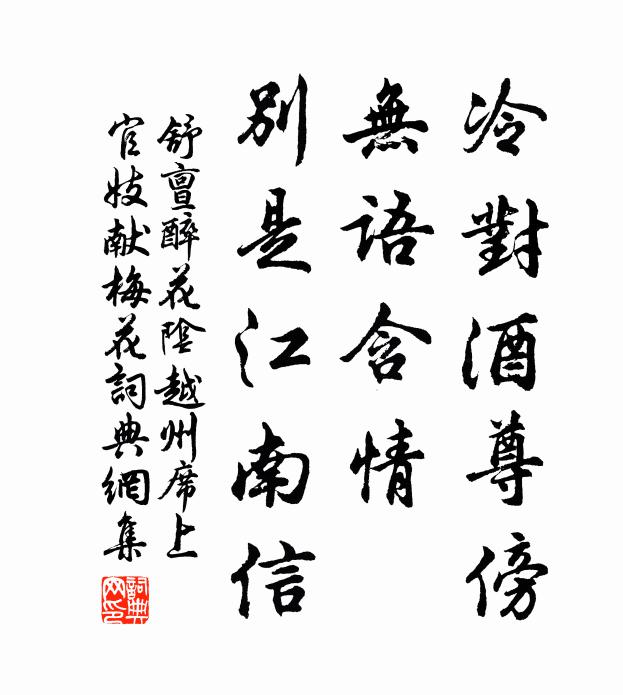 冷對酒尊傍
無語含情
別是江南信
舒亶醉花陰越州席上
官妓献梅花詞典網集
詞典網印